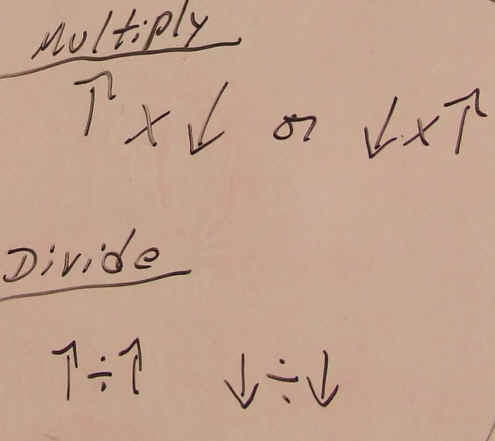 Multiply
↑ x ↓ or ↓ x ↑
Divide
↑ ÷ ↑ ↓ ÷ ↓